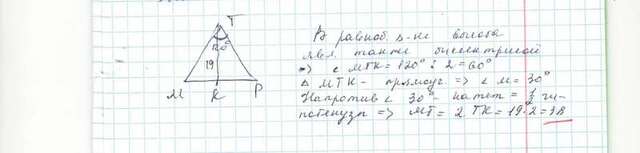 T
120°
19
M K P
В равноб. Δ-ке высота
явл. также биссектрисой
=> ∠ MTK = 120° : 2 = 60°
Δ MTK - прямоуг => ∠ M = 30°
Напротив ∠ 30° - катет = 1/2 ги-
потенузы => MT = 2 TK = 19·2 = 38